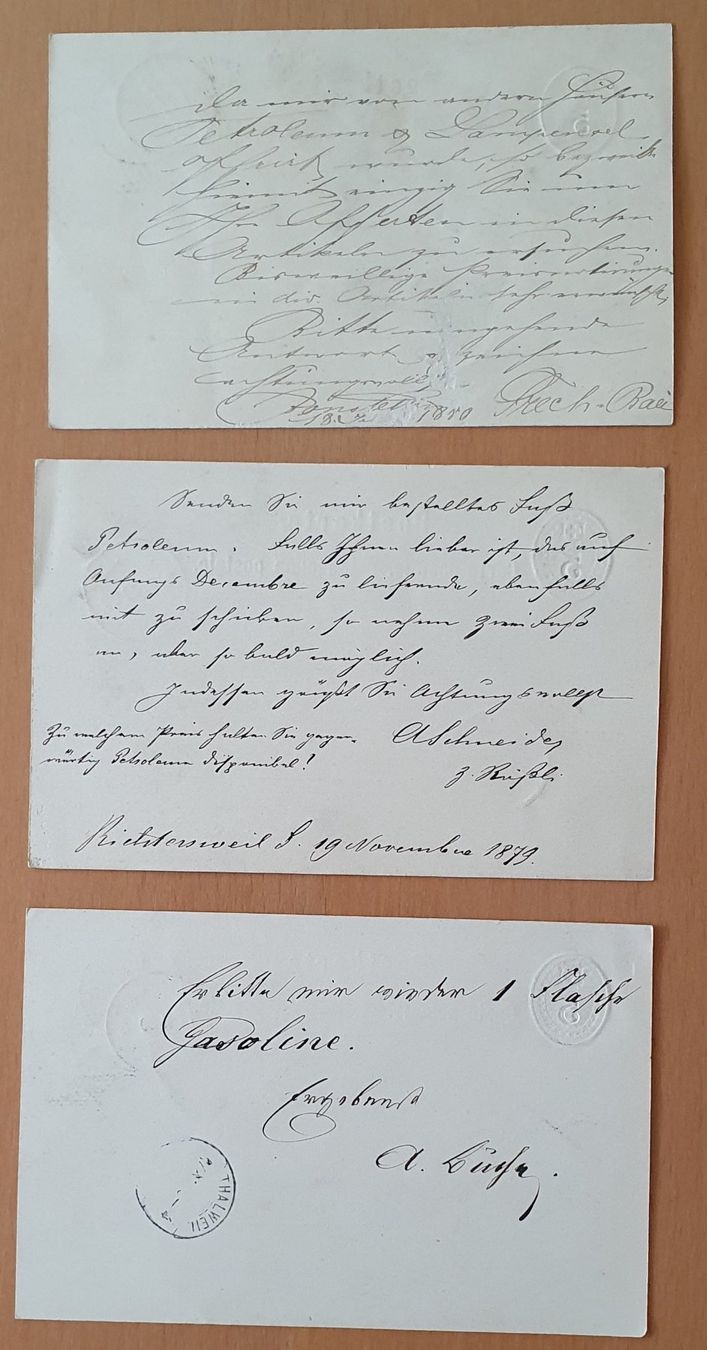 da mir von andern Häusern
Petroleum & Lampenoel
offerirt wurde, so
hiemit einzig Sie um
Ihre Offerten in diesen
Artikeln zu ersuchen.
Bitte umgehende
Antwort & zeichne
achtungsvoll
1880 Frech-
Senden Sie mir bestelltes Faß
Petroleum. Falls Ihnen lieber ist, das auf
Anfangs Decembre zu liefernde, ebenfalls
mit zu schicken, so nehme zwei Faß
an, aber so bald möglich.
Indessen grüßt Sie Achtungsvollst
Zu welchem Preis halten Sie gegen-
wärtig Petroleum disponibel!
A Schneider
z. Rößli
Richtersweil d. 19 Novembre 1879.
Erbitte mir wieder 1 Flasche
Gasoline.
Ergebenst
A.
THALWEIL